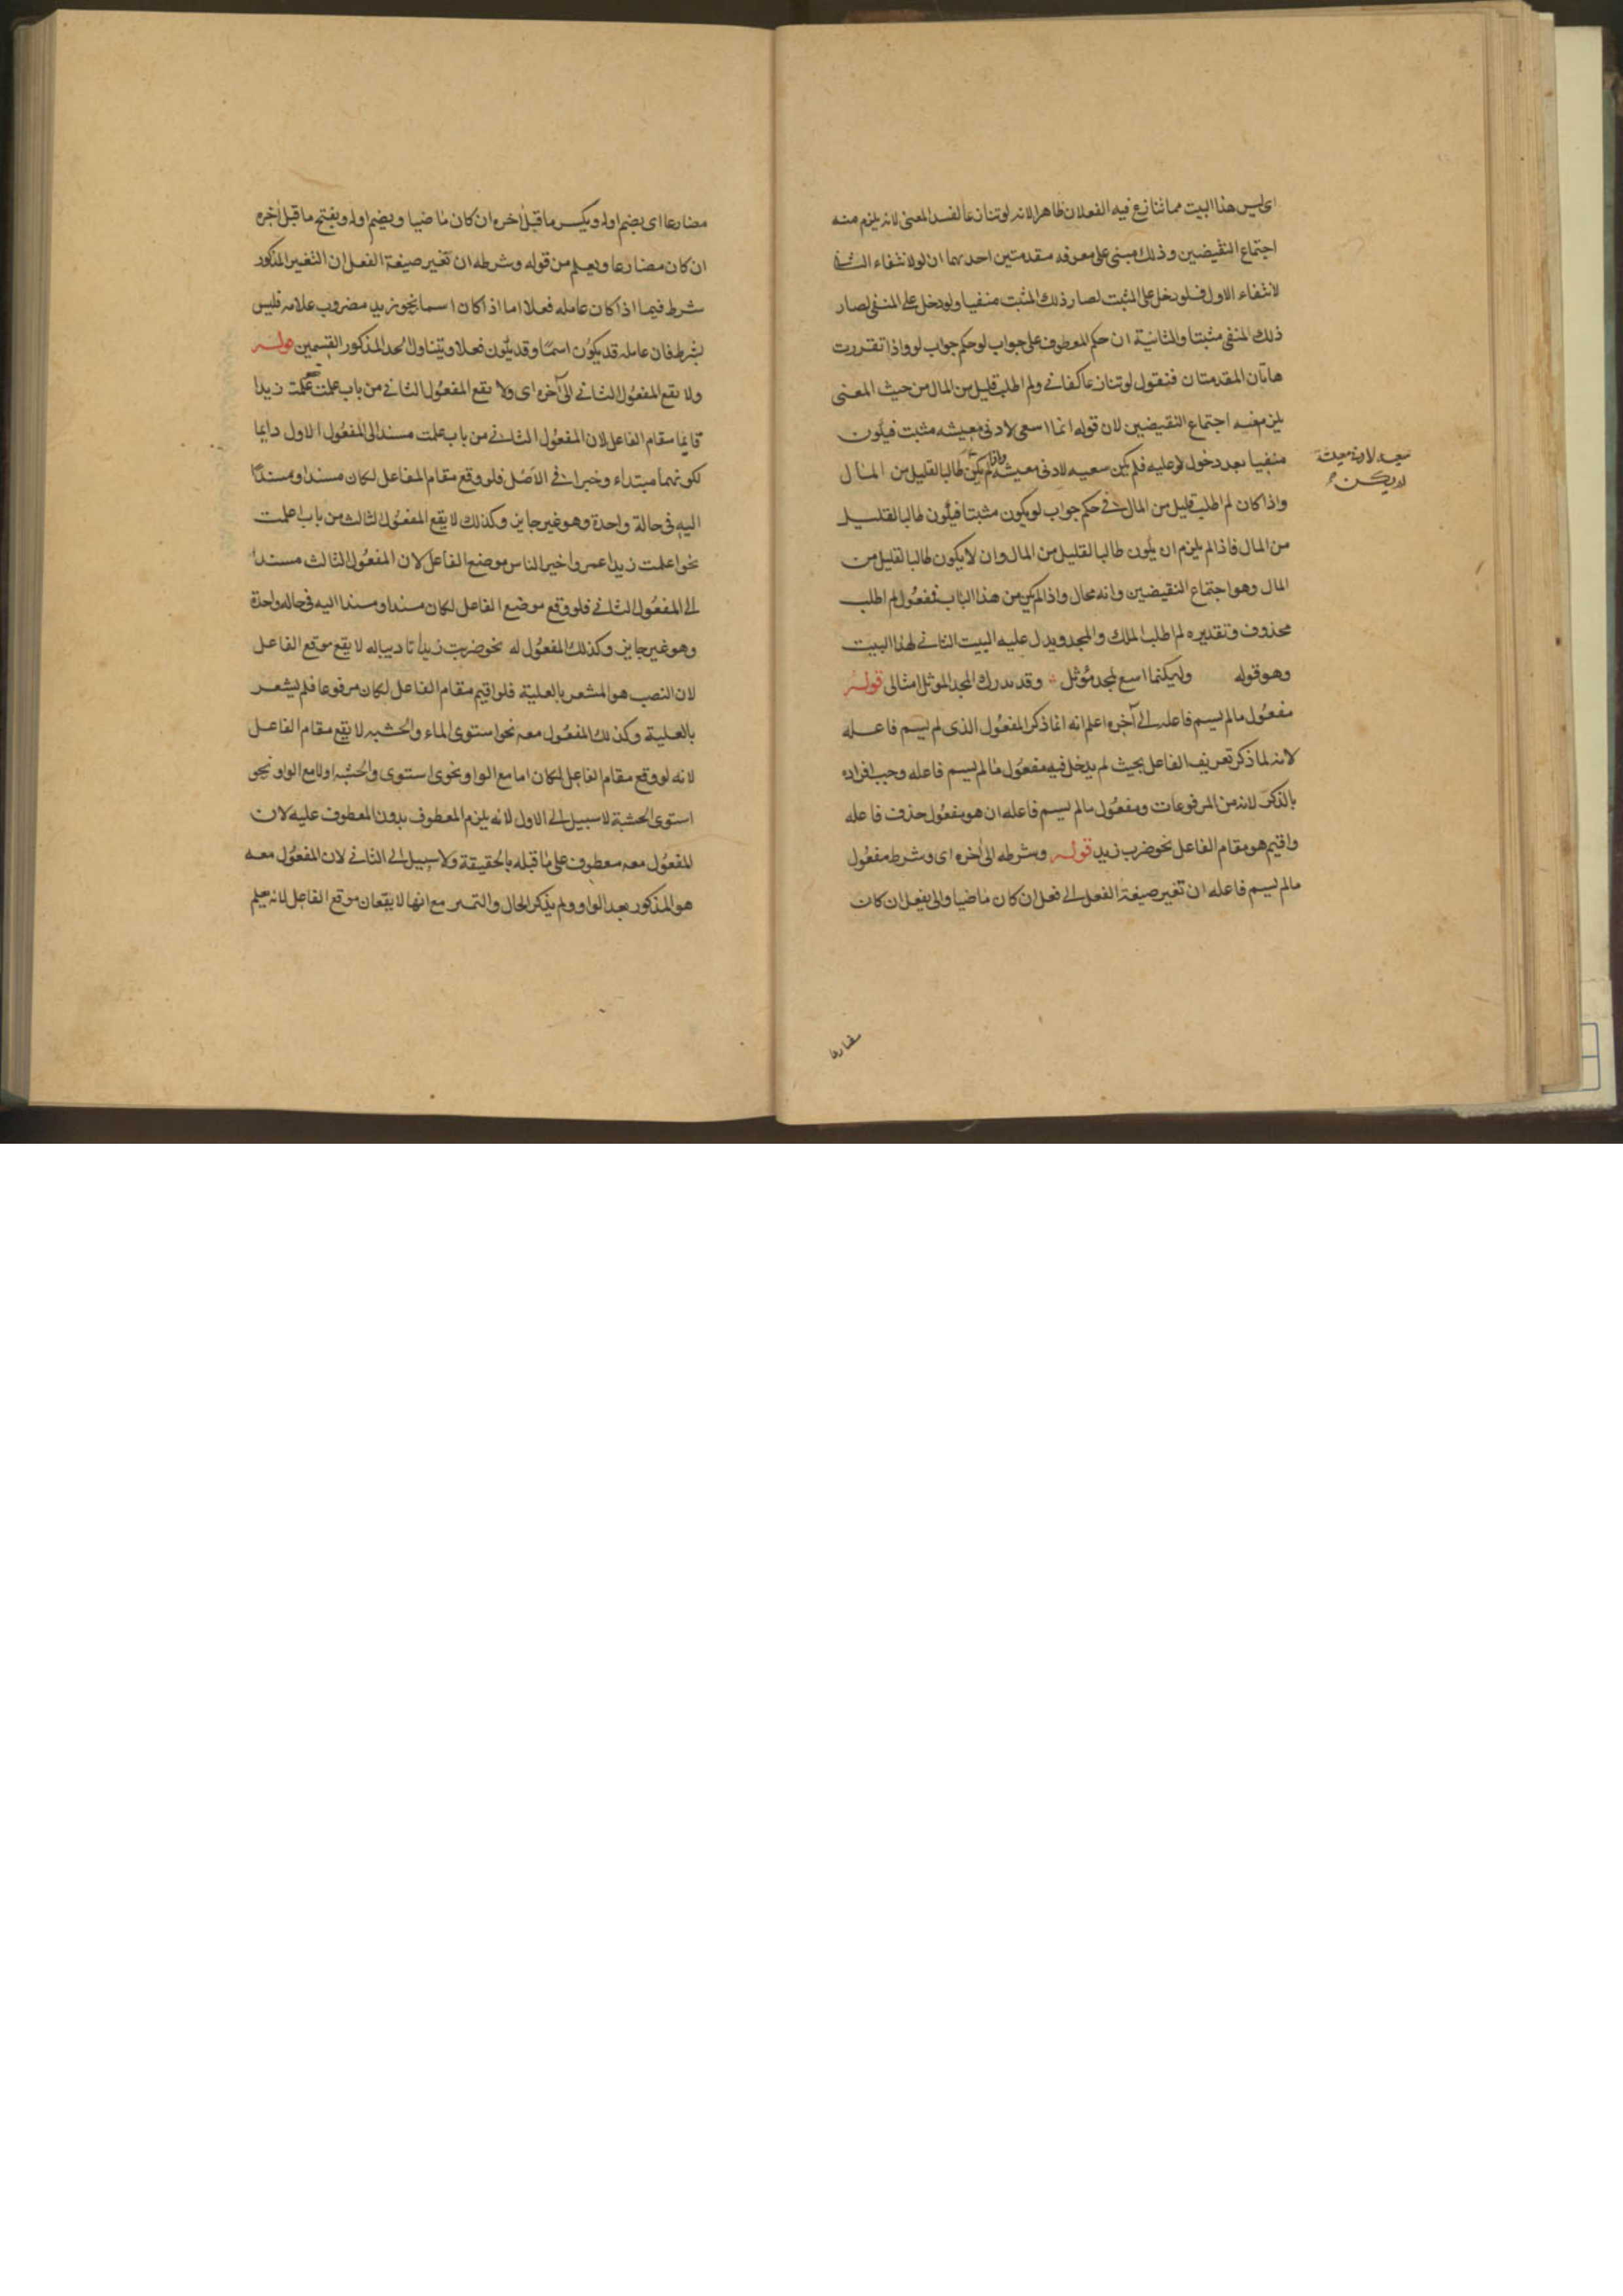 اى ليس هذا البيت مما تنازع فيه الفعلان ظاهرا لانه لو تنازعا لفسد المعنى لانه يلزم منه
اجتماع النقيضين وذلك مبنى على معرفه مقدمتين احديهما ان لو لانتفاء الثانى
لانتفاء الاول فلو دخل على المثبت لصار ذلك المثبت منفيا ولو دخل على المنفى لصار
ذلك المنفى مثبتا والثانية ان حكم المعطوف على جواب لو حكم جواب لو واذا تقررت
هاتان المقدمتان فنقول لو تنازعا كفانى ولم اطلب قليل من المال من حيث المعنى
يلزم فيه اجتماع النقيضين لان قوله انما اسعى لادنى معيشه مثبت فيكون
منفيا بعد دخول لو عليه فلم يكن سعيه لادنى معيشة واذا لم يكن طالبا لقليل من المال
واذا كان لم اطلب قليل من المال فى حكم جواب لو يكون مثبتا فيكون طالبا لقليل
من المال فاذا لم يلزم ان يكون طالبا لقليل من المال وان لا يكون طالبا لقليل من
المال وهو اجتماع النقيضين وانه محال واذا لم يكن من هذا الباب فمفعول لم اطلب
محذوف وتقديره لم اطلب الملك والمجد ويدل عليه البيت الثانى لهذا البيت
وهو قوله ولكنما اسع لمجد مؤثل وقد يدرك المجد الموثل امثالى قوله
مفعول ما لم يسم فاعله الى آخره اعلم انه انما ذكر المفعول الذى لم يسم فاعله
لانه لما ذكر تعريف الفاعل بحيث لم يدخل فيه مفعول ما لم يسم فاعله وجب افراده
بالذكر لانه من المرفوعات ومفعول ما لم يسم فاعله ان هو مفعول حذف فاعله
واقيم هو مقام الفاعل نحو ضرب زيد قوله وشرطه الى اخره اى وشرط مفعول
ما لم يسم فاعله ان تغير صيغة الفعل الى فعل ان كان ماضيا والى يفعل ان كان
سعيه لادنى معيشة
لم يكن
مضارعا
مضارعا اى يضم اوله ويكسر ما قبل اخره ان كان ماضيا ويضم اوله ويفتح ما قبل اخره
ان كان مضارعا ويعلم من قوله وشرطه ان تغير صيغة الفعل ان التغير المذكور
شرط فيما اذا كان عامله فعلا اما اذا كان اسما نحو زيد مضروب غلامه فليس
بشرط فان عامله قد يكون اسما وقد يكون فعلا ويتناول الحد المذكور القسمين قوله
ولا تقع المفعول الثانى الى آخره اى ولا تقع المفعول الثانى من باب علمت علمت زيدا
قايما مقام الفاعل لان المفعول الثانى من باب علمت مسند الى المفعول الاول دايما
لكونهما مبتداء وخبرا فى الاصل فلو وقع مقام الفاعل لكان مسندا ومسندا
اليه فى حالة واحدة وهو غير جايز وكذلك لا يقع المفعول الثالث من باب اعلمت
نحو اعلمت زيدا عمروا خير الناس موضع الفاعل لان المفعول الثالث مسندا
الى المفعول الثانى فلو وقع موضع الفاعل لكان مسندا ومسندا اليه فى حاله واحدة
وهو غير جايز وكذلك المفعول له نحو ضربت زيدا تاديبا له لا يقع موقع الفاعل
لان النصب هو المشعر بالعلية فلو اقيم مقام الفاعل لكان مرفوعا فلم يشعر
بالعلية وكذلك المفعول معه نحو استوى الماء والخشبه لا يقع مقام الفاعل
لانه لو وقع مقام الفاعل لكان اما مع الواو نحو استوى والخشبه او لا مع الواو نحو
استوى الخشبة لا سبيل الى الاول لانه يلزم المعطوف بدون المعطوف عليه لان
المفعول معه معطوف على ما قبله بالحقيقة ولا سبيل الى الثانى لان المفعول معه
هو المذكور بعد الواو ولم يذكر الحال والتميز مع انهما لا يقعان موقع الفاعل لانه يعلم